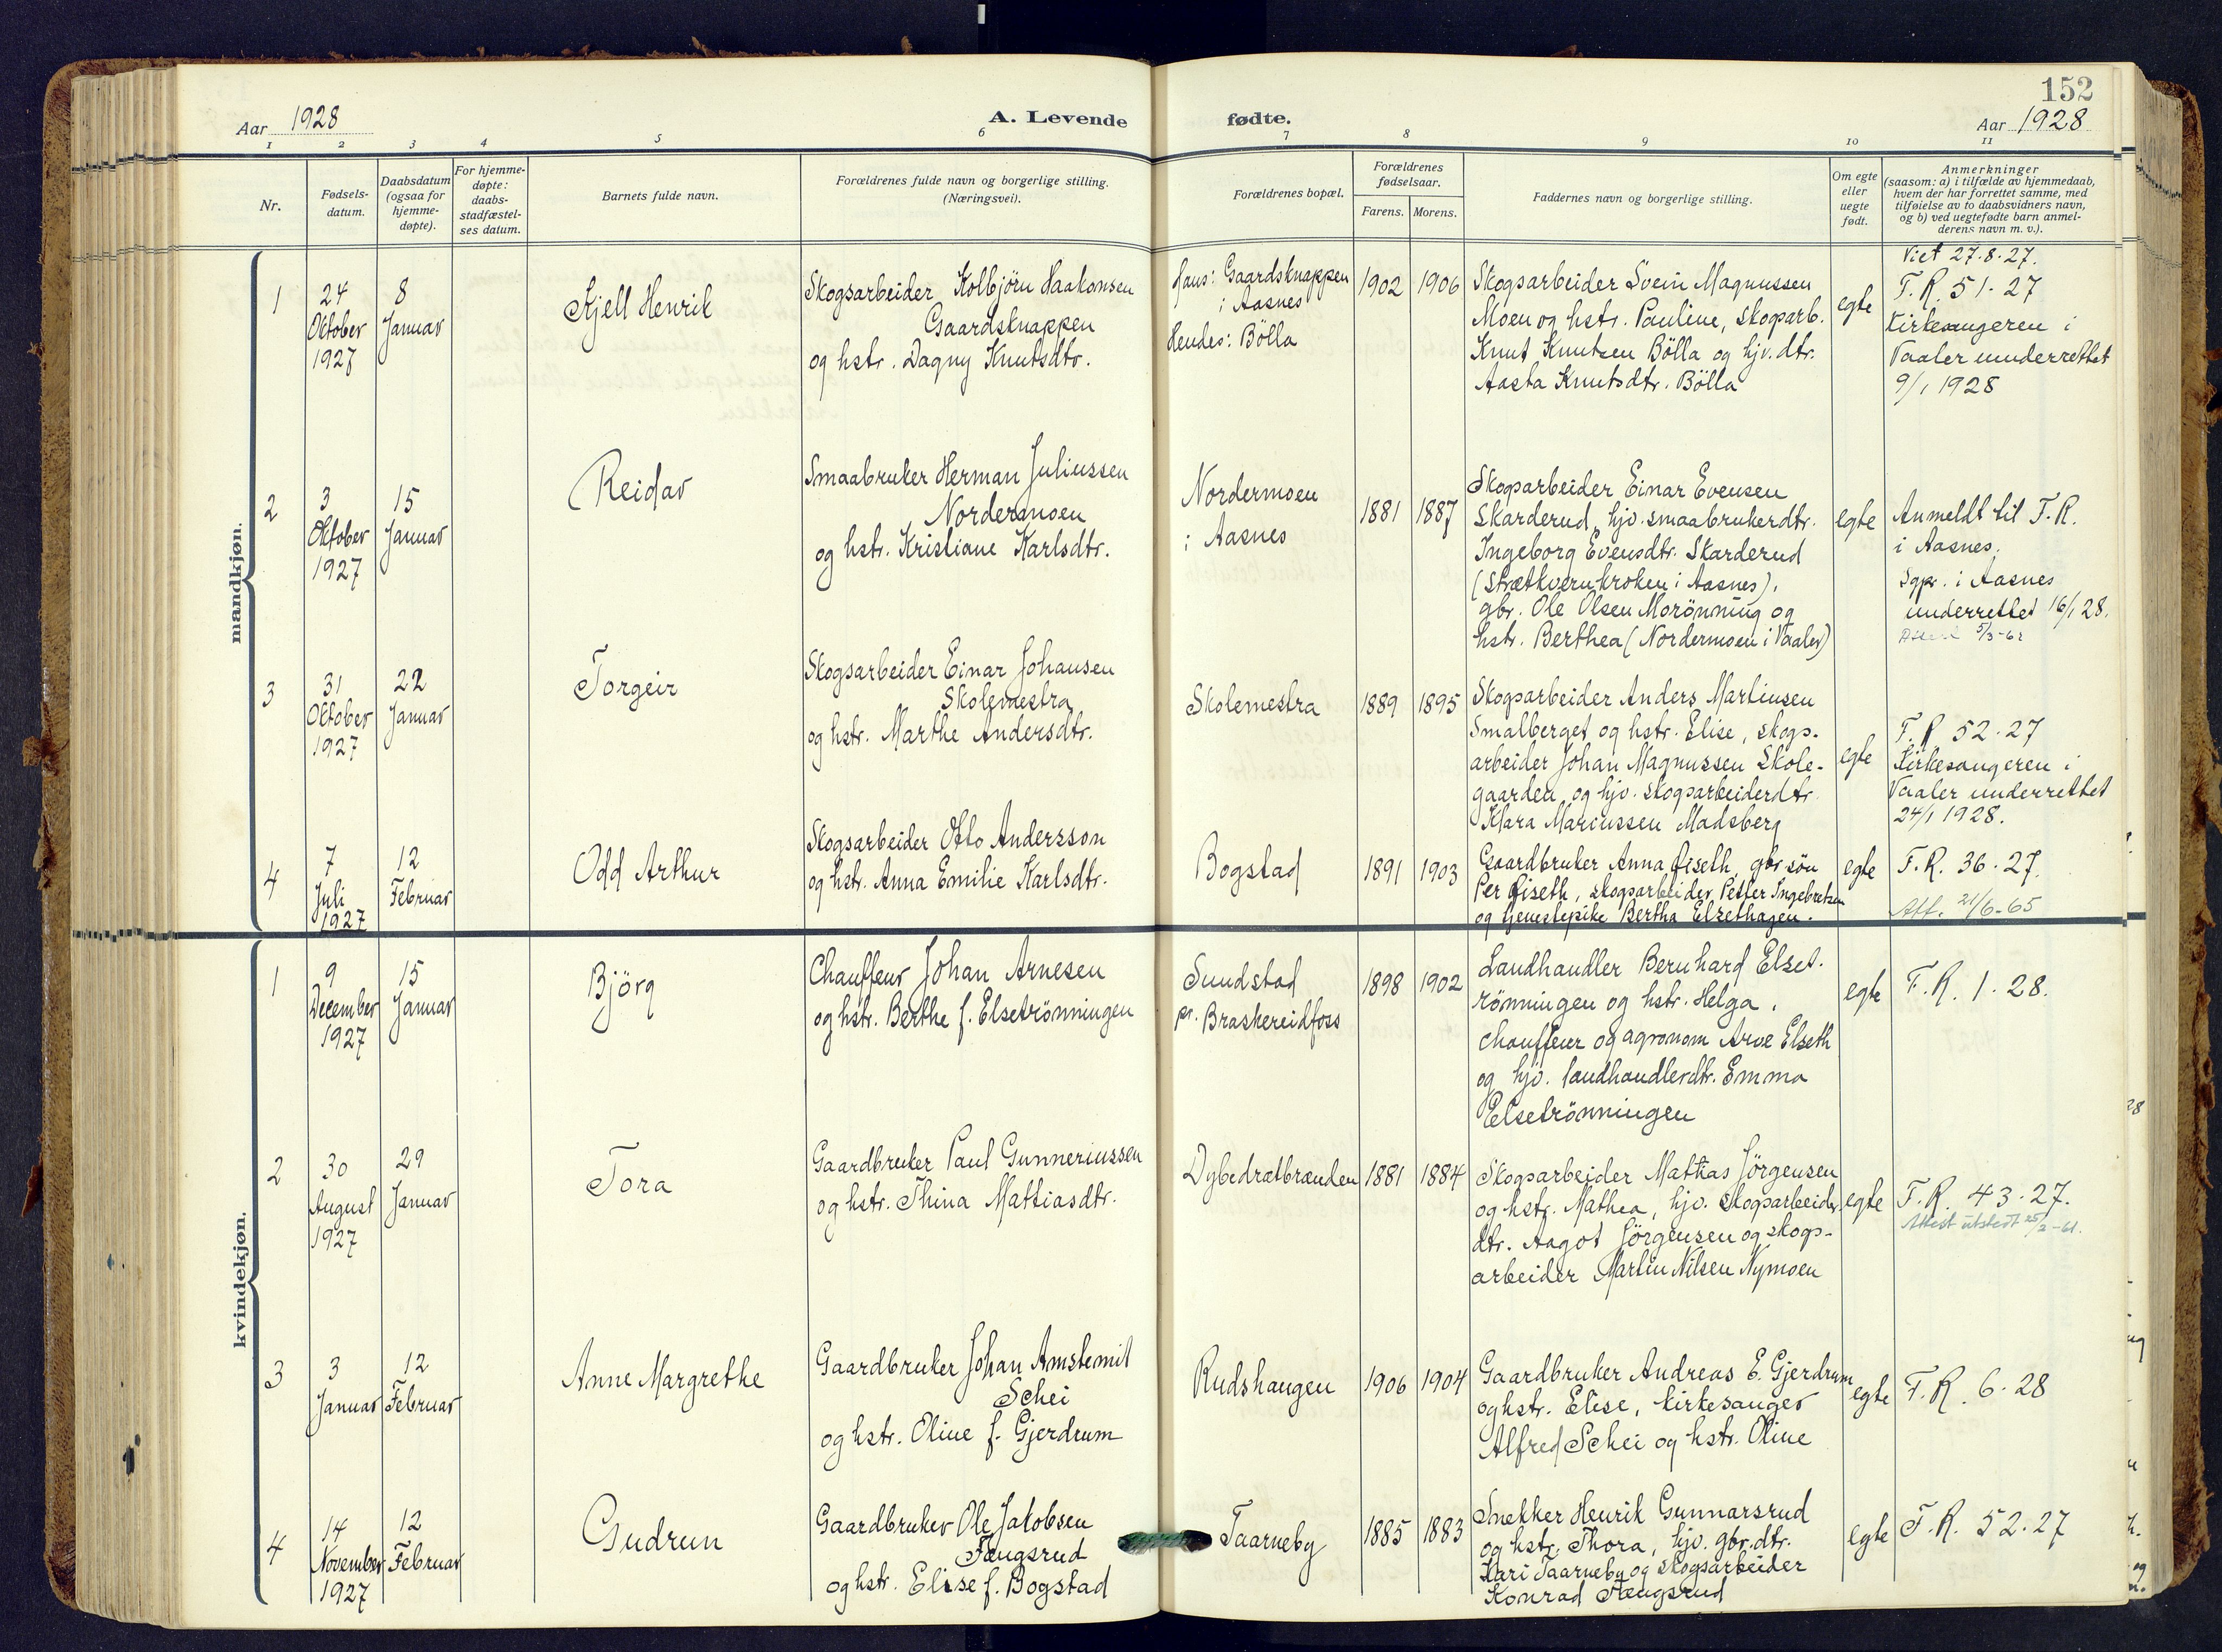 152
Aar 1928
A. Levende fødte.
Aar 1928
1 2 3 4 5 6 7 8 9 10 11
Nr.
Fødsels-
datum.
Daabsdatum
(ogsaa for
hjemme-
døpte).
For hjemme-
døpte:
daabs-
stadfæstel-
ses datum.
Barnets fulde navn.
Forældrenes fulde navn og borgerlige stilling.
(Næringsvei).
Forældrenes bopæl.
Forældrenes
fødselsaar.
Farens. Morens.
Faddernes navn og borgerlige stilling.
Om egte
eller
uegte
født.
Anmerkninger
(saasom: a) i tilfælde av hjemmedaab,
hvem der har forrettet samme, med
tilføielse av to daabsvidners navn,
og b) ved uegtefødte barn anmel-
derens navn m. v.).
mandkjøn.
1
24
Oktober
1927
8
Januar
Kjell Henrik
Skogsarbeider Kolbjörn Haakonsen
Gaardsknappen
og hstr. Dagny Knutsdtr.
Hans: Gaardsknappen
i Aasnes
Hendes: Bölla
1902
1906
Skogsarbeider Svein Magnussen
Moen og hstr. Pauline, skogarb.
Knut Knutsen Bölla og hjv. dtr.
Aasta Knutsdtr. Bölla
egte
Viet 27-8-27.
F.R. 51-27
Kirkesangeren i
Vaaler underrettet
9/1 1928
2
3
Oktober
1927
15
Januar
Reidar
Smaabruker Herman Juliussen
Nordermoen
og hstr. Kristiane Karlsdtr.
Nordermoen
i Aasnes
1881
1887
Skogsarbeider Einar Evensen
Skarderud, hjv. smaabrukerdtr.
Ingeborg Evensdtr. Skarderud
(Strætkvernkroken i Aasnes),
gbr. Ole Olsen Morönning og
hstr. Berthea (Nordermoen i Vaaler)
egte
Anmeldt til F.R.
i Aasnes.
Sgpr. i Aasnes
underrettet 16/1 28.
5/3-62
3
31
Oktober
1927
22
Januar
Torgeir
Skogsarbeider Einar Johansen
Skolemestra
og hstr. Marthe Andersdtr.
Skolemestra
1889
1895
Skogsarbeider Anders Martinsen
Smalberget og hstr. Elise, skogs-
arbeider Johan Magnussen Skole-
gaarden og hjv. skogsarbeiderdtr.
Klara Mariussen Madsberg
egte
F.R 52-27
Kirkesangeren i
Vaaler underrettet
24/1 1928.
4
7
Juli
1927
12
Februar
Odd Arthur
Skogsarbeider Otto Andersson
og hstr. Anna Emilie Karlsdtr.
Bogstad
1891
1903
Gaardbruker Anna Fiseth, gbr sön
Per Fiseth, skogsarbeider Petter Ingebretsen
og tjenestepike Bertha Elsethagen.
egte
F.R. 36-27.
Att. 21/6-65
kvindekjøn.
1
9
December
1927
15
Januar
Björg
Chauffeur Johan Arnesen
og hstr. Berthe f. Elsetrönningen
Sundstad
pr. Braskereidfoss
1898
1902
Landhandler Bernhard Elset-
rönningen og hstr. Helga,
chauffeur og agronom Arve Elseth
og hjv. landhandlerdtr. Emma
Elsetrönningen
egte
F.R. 1-28.
2
30
August
1927
29
Januar
Tora
Gaardbruker Paul Gunneriussen
og hstr. Thina Mattiasdtr.
Dybedrætbrænden
1881
1884
Skogsarbeider Mathias Jörgensen
og hstr. Mathea, hjv. skogsarbeider
dtr. Aagot Jörgensen og skogs-
arbeider Martin Nilsen Nymoen
egte
F.R. 43-27.
Attest utstedt 25/2-61.
3
3
Januar
12
Februar
Anne Margrethe
Gaardbruker Johan Amstemil
Schei
og hstr. Oline f. Gjerdrum
Rudshaugen
1906
1904
Gaardbruker Andreas E. Gjerdrum
og hstr. Elise, kirkesanger
Alfred Schei og hstr. Oline
egte
F.R. 6-28
4
14
November
1927
12
Februar
Gudrun
Gaardbruker Ole Jakobsen
Fængsrud
og hstr. Elise f. Bogstad
Taarneby
1885
1883
Snekker Henrik Gunnarsrud
og hstr. Thora, hjv. gbr.dtr.
Kari Taarneby og skogsarbeider
Konrad Fængsrud
egte
F.R. 52-27